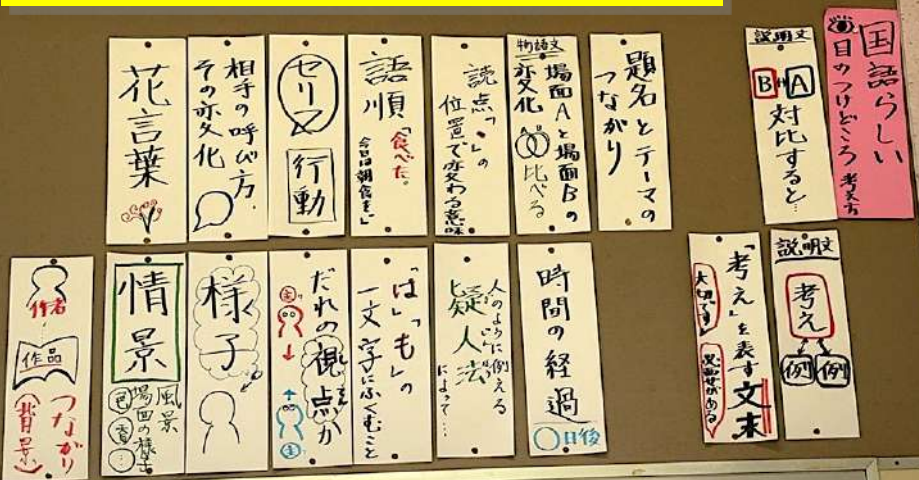 国語らしい
目のつけどころ 考え方
説明文
A
B
対比すると…
題名とテーマの
つながり
物語文
場面Aと場面Bの
変化 比べる
読点「、」の
位置で変わる意味
語順
「食べた。
今日は朝食を。」
セリフ
行動
相手の呼び方
その変化
花言葉
説明文
考え
例
例
「考え」を表す文末
大切です
必要がある
時間の経過
〇日後
人のように例える
擬人法
によって…
「は」「も」の
一文字にふくむこと
だれの視点か
様子
情景
風景
場面の様子
色
音
…
作者
作品
つながり
(背景)